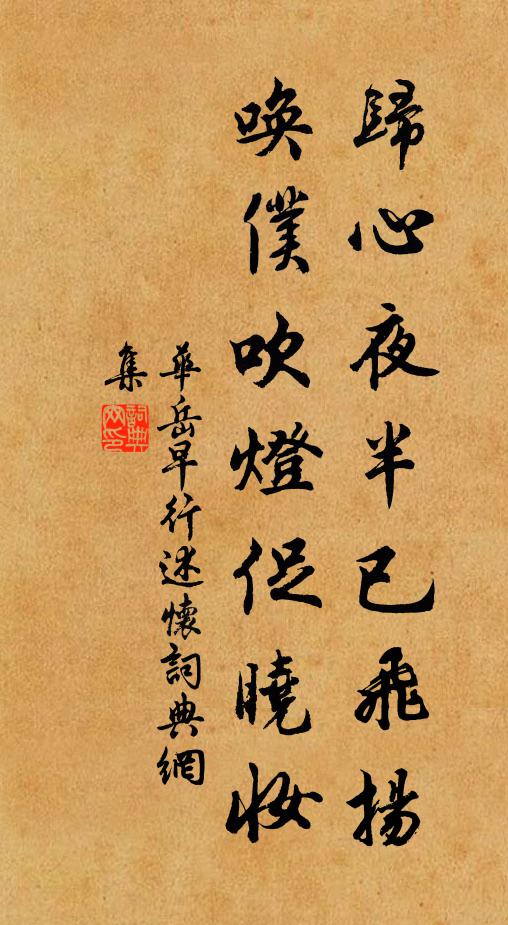 歸心夜半已飛揚
喚僕吹燈促曉妝
華岳早行述懷詞典網
集
詞典
网印